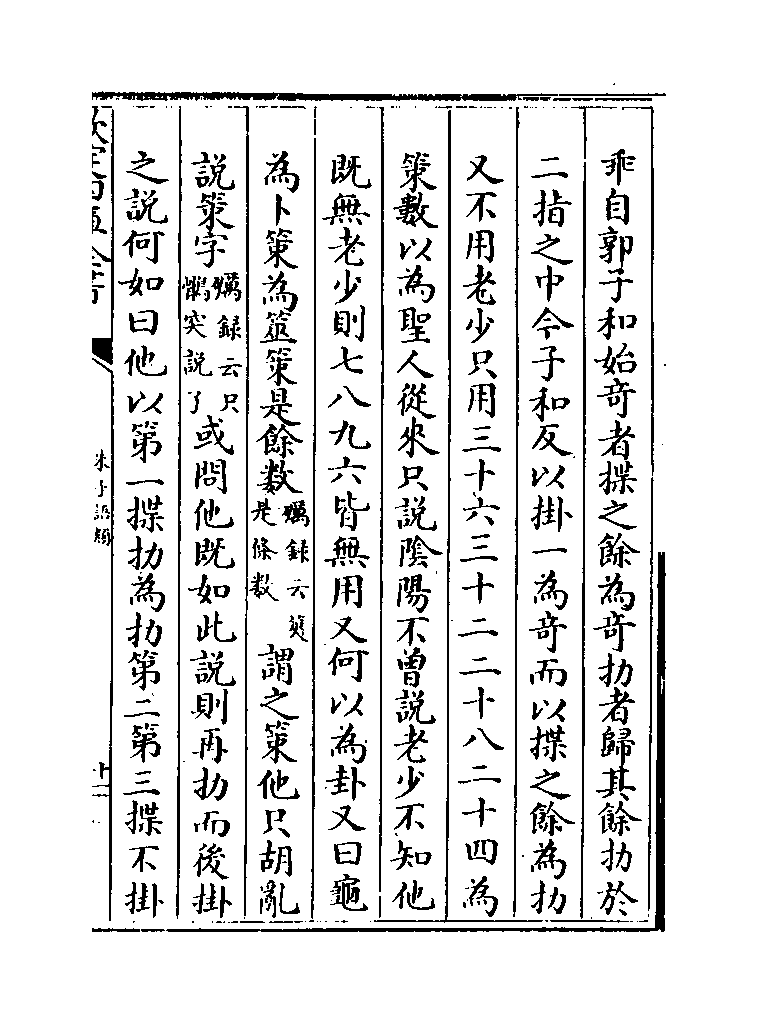 乖自郭子和始奇者揲之餘為奇扐者歸其餘扐於
二指之中今子和反以掛一為奇而以揲之餘為扐
又不用老少只用三十六三十二二十八二十四為
策數以為聖人從來只說陰陽不曾說老少不知他
既無老少則七八九六皆無用又何以為卦又曰龜
為卜策為筮策是餘數礪録云筴是條数謂之策他只胡亂
說策字礪録云只鶻突説了或問他既如此說則再扐而後掛
之說何如曰他以第一揲扐為扐第二第三揲不掛
朱子語類
十二